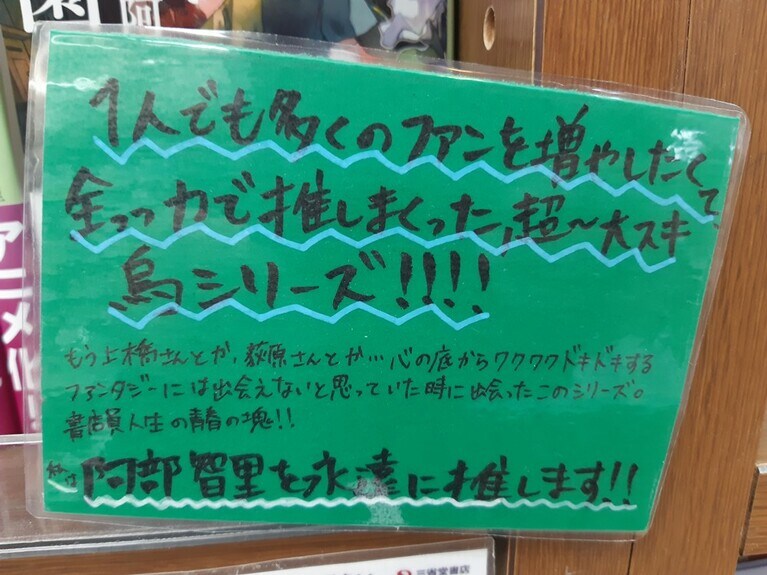 阿
1人でも多くのファンを増やしたくて
全っ力で推しまくった、超〜大スキ
烏シリーズ!!!!
もう上橋さんとか、荻原さんとか…心の底からワクワクドキドキする
ファンタジーには出会えないと思っていた時に出会ったこのシリーズ。
書店員人生の青春の塊!!
私は阿部智里を永遠に推します!!
アニメ化
三省堂書店